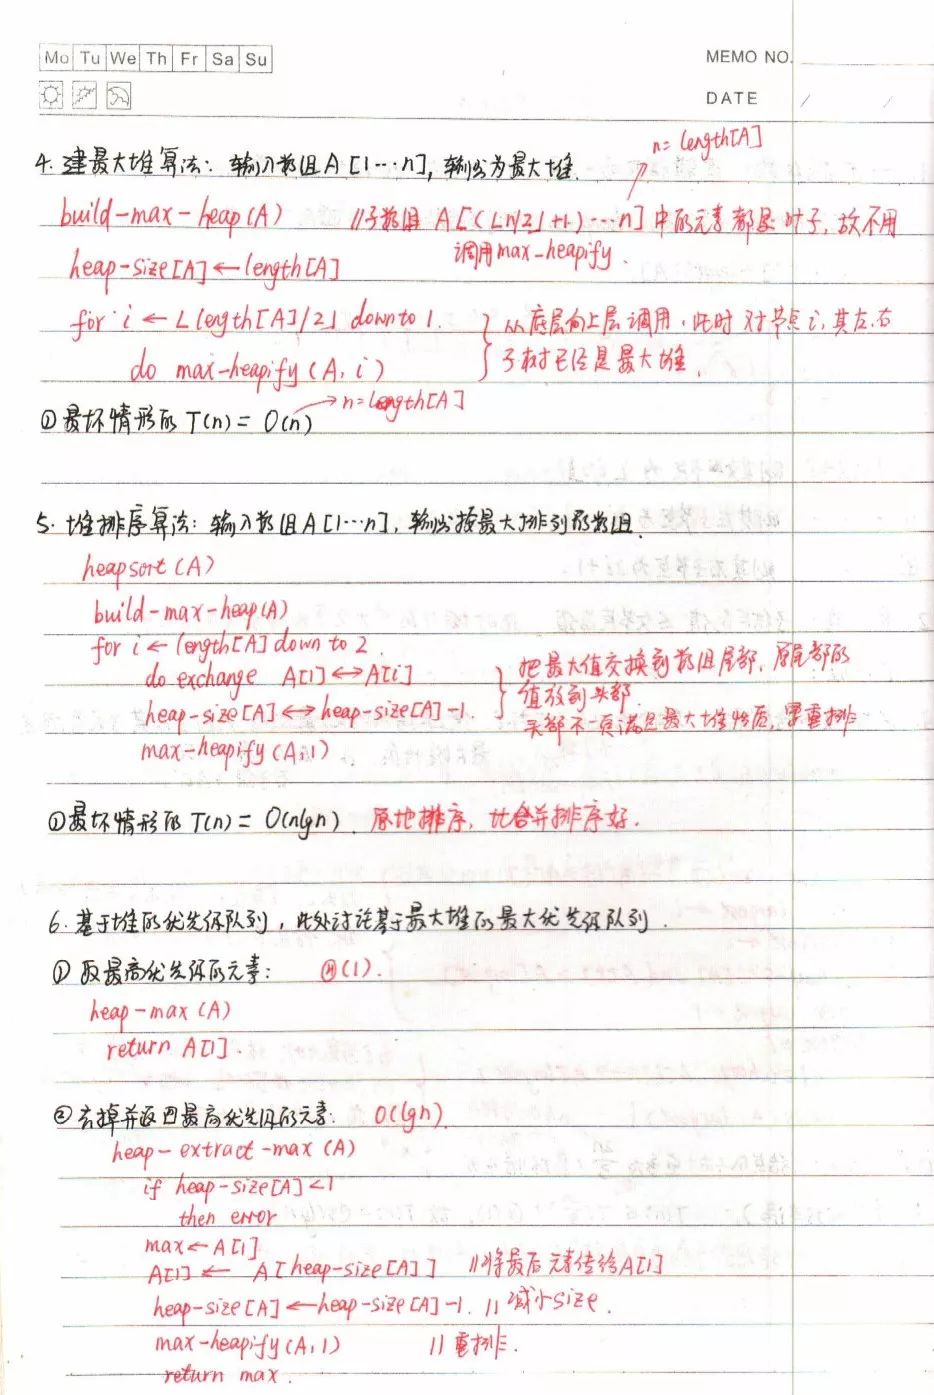 Mo Tu We Th Fr Sa Su
MEMO NO.
DATE / /
n=length[A]
4. 建最大堆算法：输入数组A[1…n]，输出为最大堆.
build-max-heap(A) //子数组 A[(⌊n/2⌋+1)…n]中的元素都是叶子，故不用
调用max-heapify.
heap-size[A]←length[A]
for i ← ⌊length[A]/2⌋ downto 1.
do max-heapify(A,i)
从底层向上层调用，此时对节点i，其左、右
子树已经是最大堆.
→n=length[A]
①最坏情形的 T(n)= O(n)
5. 堆排序算法：输入数组A[1…n]，输出按最大排列的数组.
heapsort(A)
build-max-heap(A)
for i←length[A] down to 2.
do exchange A[1]↔A[i]
heap-size[A]↔heap-size[A]-1.
max-heapify(A,1)
把最大值交换到数组尾部，原尾部的
值放到头部.
头部不一定满足最大堆性质，需重排
①最坏情形的 T(n)= O(nlgn). 原地排序，比合并排序好.
6. 基于堆的优先级队列，此处讨论基于最大堆的最大优先级队列.
① 取最高优先级的元素： Θ(1).
heap-max(A)
return A[1].
②去掉并返回最高优先级的元素： O(lgn).
heap-extract-max(A)
if heap-size[A]<1
then error
max←A[1]
A[1]← A[heap-size[A]] //将最后元素传给A[1]
heap-size[A]←heap-size[A]-1. // 减小size.
max-heapify(A,1) // 重排.
return max.